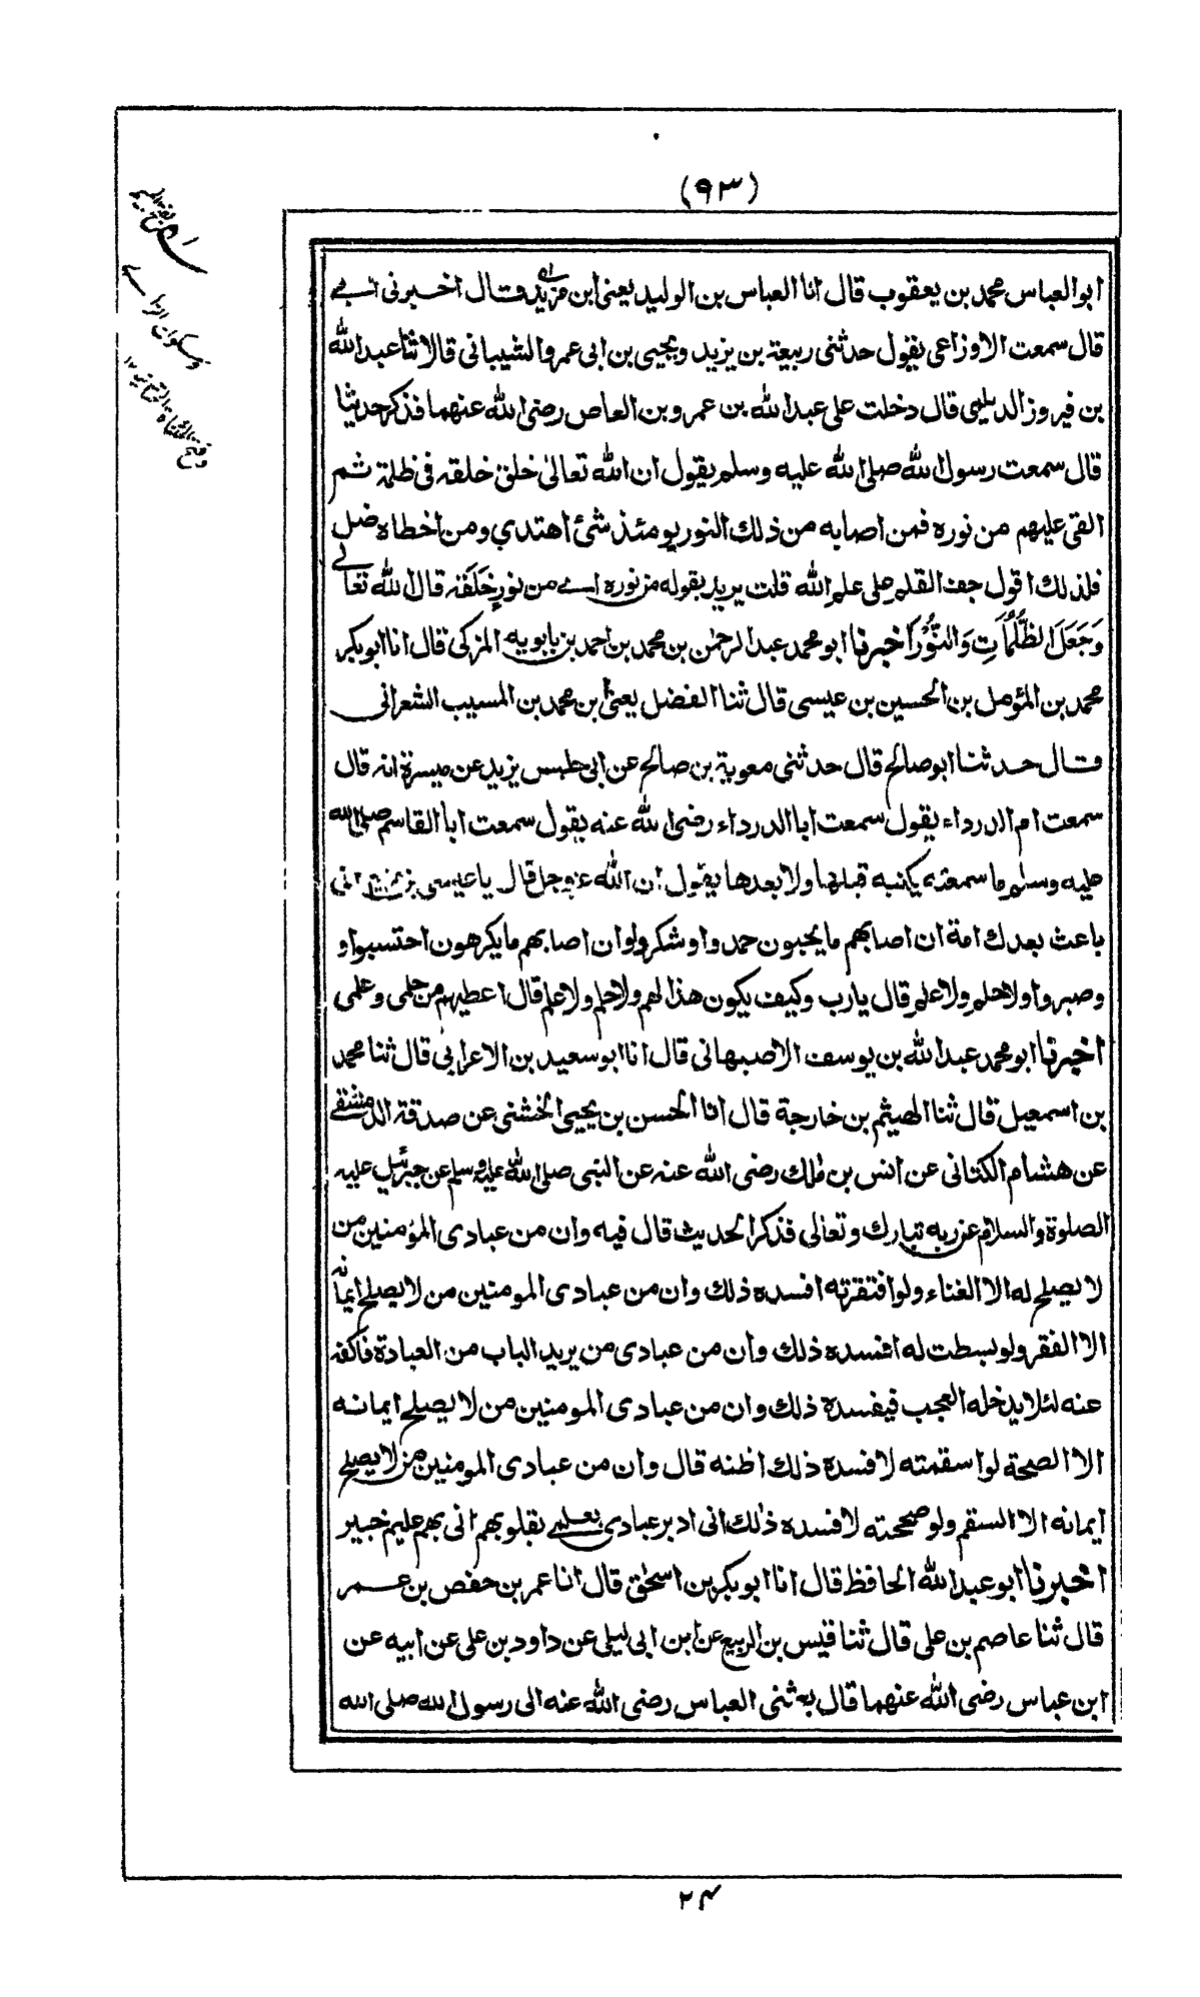 (٩٣)
ابو العباس محمد بن يعقوب قال انا العباس بن الوليد يعنى ابن مزيد قال اخبرنى ابى
قال سمعت الاوزاعى يقول حدثنى ربيعة بن يزيد ويحيى بن ابى عمرو الشيبانى قالا ثنا عبد الله
بن فيروز الديلمى قال دخلت على عبد الله بن عمرو بن العاص رضى الله عنهما فذكر حديثا
قال سمعت رسول الله صلى الله عليه وسلم يقول ان الله تعالى خلق خلقه فى ظلمة ثم
القى عليهم من نوره فمن اصابه من ذلك النور يومئذ شئ اهتدي ومن اخطاه ضل
فلذلك اقول جف القلم على علم الله قلت يريد بقوله من نوره اے من نور خلقه قال الله تعالى
وَجَعَلَ الظُّلُمَاتِ وَالنُّوْرَ اخبرنا ابو محمد عبد الرحمٰن بن محمد بن احمد بن بابويه المزكى قال انا ابو بكر
محمد بن المؤمل بن الحسين بن عيسى قال ثنا الفضل يعنى ابن محمد بن المسيب الشعرانى
قال حدثنا ابو صالح قال حدثنى معوية بن صالح عن ابى حلبس يزيد عن ميسرة انه قال
سمعت ام الدرداء يقول سمعت ابا الدرداء رضى الله عنه يقول سمعت ابا القاسم صلى الله
عليه وسلم ما سمعته يكنيه قبلها ولا بعدها يقول ان الله عز وجل قال يا عيسى بن مريم انى
باعث بعدك امة ان اصابهم ما يحبون حمدوا وشكروا وان اصابهم ما يكرهون احتسبوا و
وصبروا ولا حلم ولا علم قال يا رب وكيف يكون هذا لهم ولا حلم ولا علم قال اعطيهم من حلمى وعلمى
اخبرنا ابو محمد عبد الله بن يوسف الاصبهانى قال انا ابو سعيد بن الاعرابى قال ثنا محمد
بن اسمعيل قال ثنا الهيثم بن خارجة قال انا الحسن بن يحيى الخشنى عن صدقة الدمشقے
عن هشام الكتانى عن انس بن مٰلك رضى الله عنه عن النبى صلى الله عليه وسلم عن جبرئيل عليه
الصلوة والسلام عن ربه تبارك وتعالى فذكر الحديث قال فيه وان من عبادى المؤمنين من
لا يصلح له الا الغناء ولو افتقرته افسده ذلك وان من عبادى المومنين من لا يصلح ايمانه
الا الفقر ولو بسطت له افسده ذلك وان من عبادى من يريد الباب من العبادة فاكفه
عنه لئلا يدخله العجب فيفسده ذلك وان من عبادى المومنين من لا يصلح ايمانه
الا الصحة لو اسقمته لافسده ذلك اظنه قال وان من عبادى المومنين من لا يصلح
ايمانه الا السقم ولو صححته لافسده ذٰلك انى ادبر عبادى بعلمے بقلوبهم انى بهم عليم خبير
اخبرنا ابو عبد الله الحافظ قال انا ابو بكر بن اسحٰق قال انا عمر بن حفص بن عمر
قال ثنا عاصم بن على قال ثنا قيس بن الربيع عن ابن ابى ليلى عن داود بن على عن ابيه عن
ابن عباس رضى الله عنهما قال بعثنى العباس رضى الله عنه الى رسول الله صلى الله
٢٤